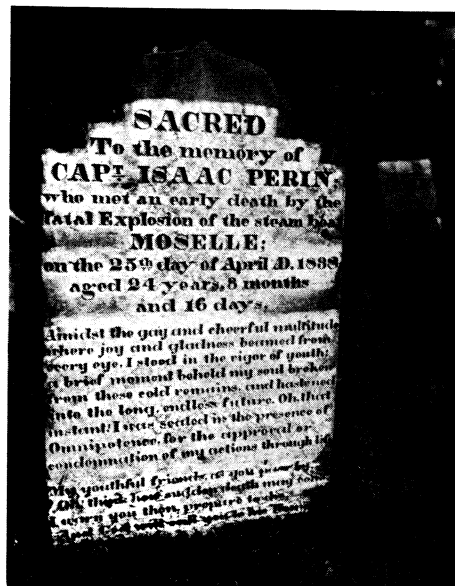 SACRED
To the memory of
CAPT. ISAAC PERIN;
who met an early death by the
fatal Explosion of the steam boa
MOSELLE;
on the 25th day of April A.D. 1838
aged 24 years, 8 months
and 16 days,
Amidst the gay and cheerful multitude
where joy and gladness beamed from
every eye, I stood in the vigor of youth!
a brief moment beheld my soul broken
from these cold remains, and hastened
into the long, endless future. Oh, that
instant! I was settled in the presence of
Omnipotence, for the approval or
condemnation of my actions through
My youthful friends, as you pass by
Oh, think how sudden death may come
I warn you then, prepare to